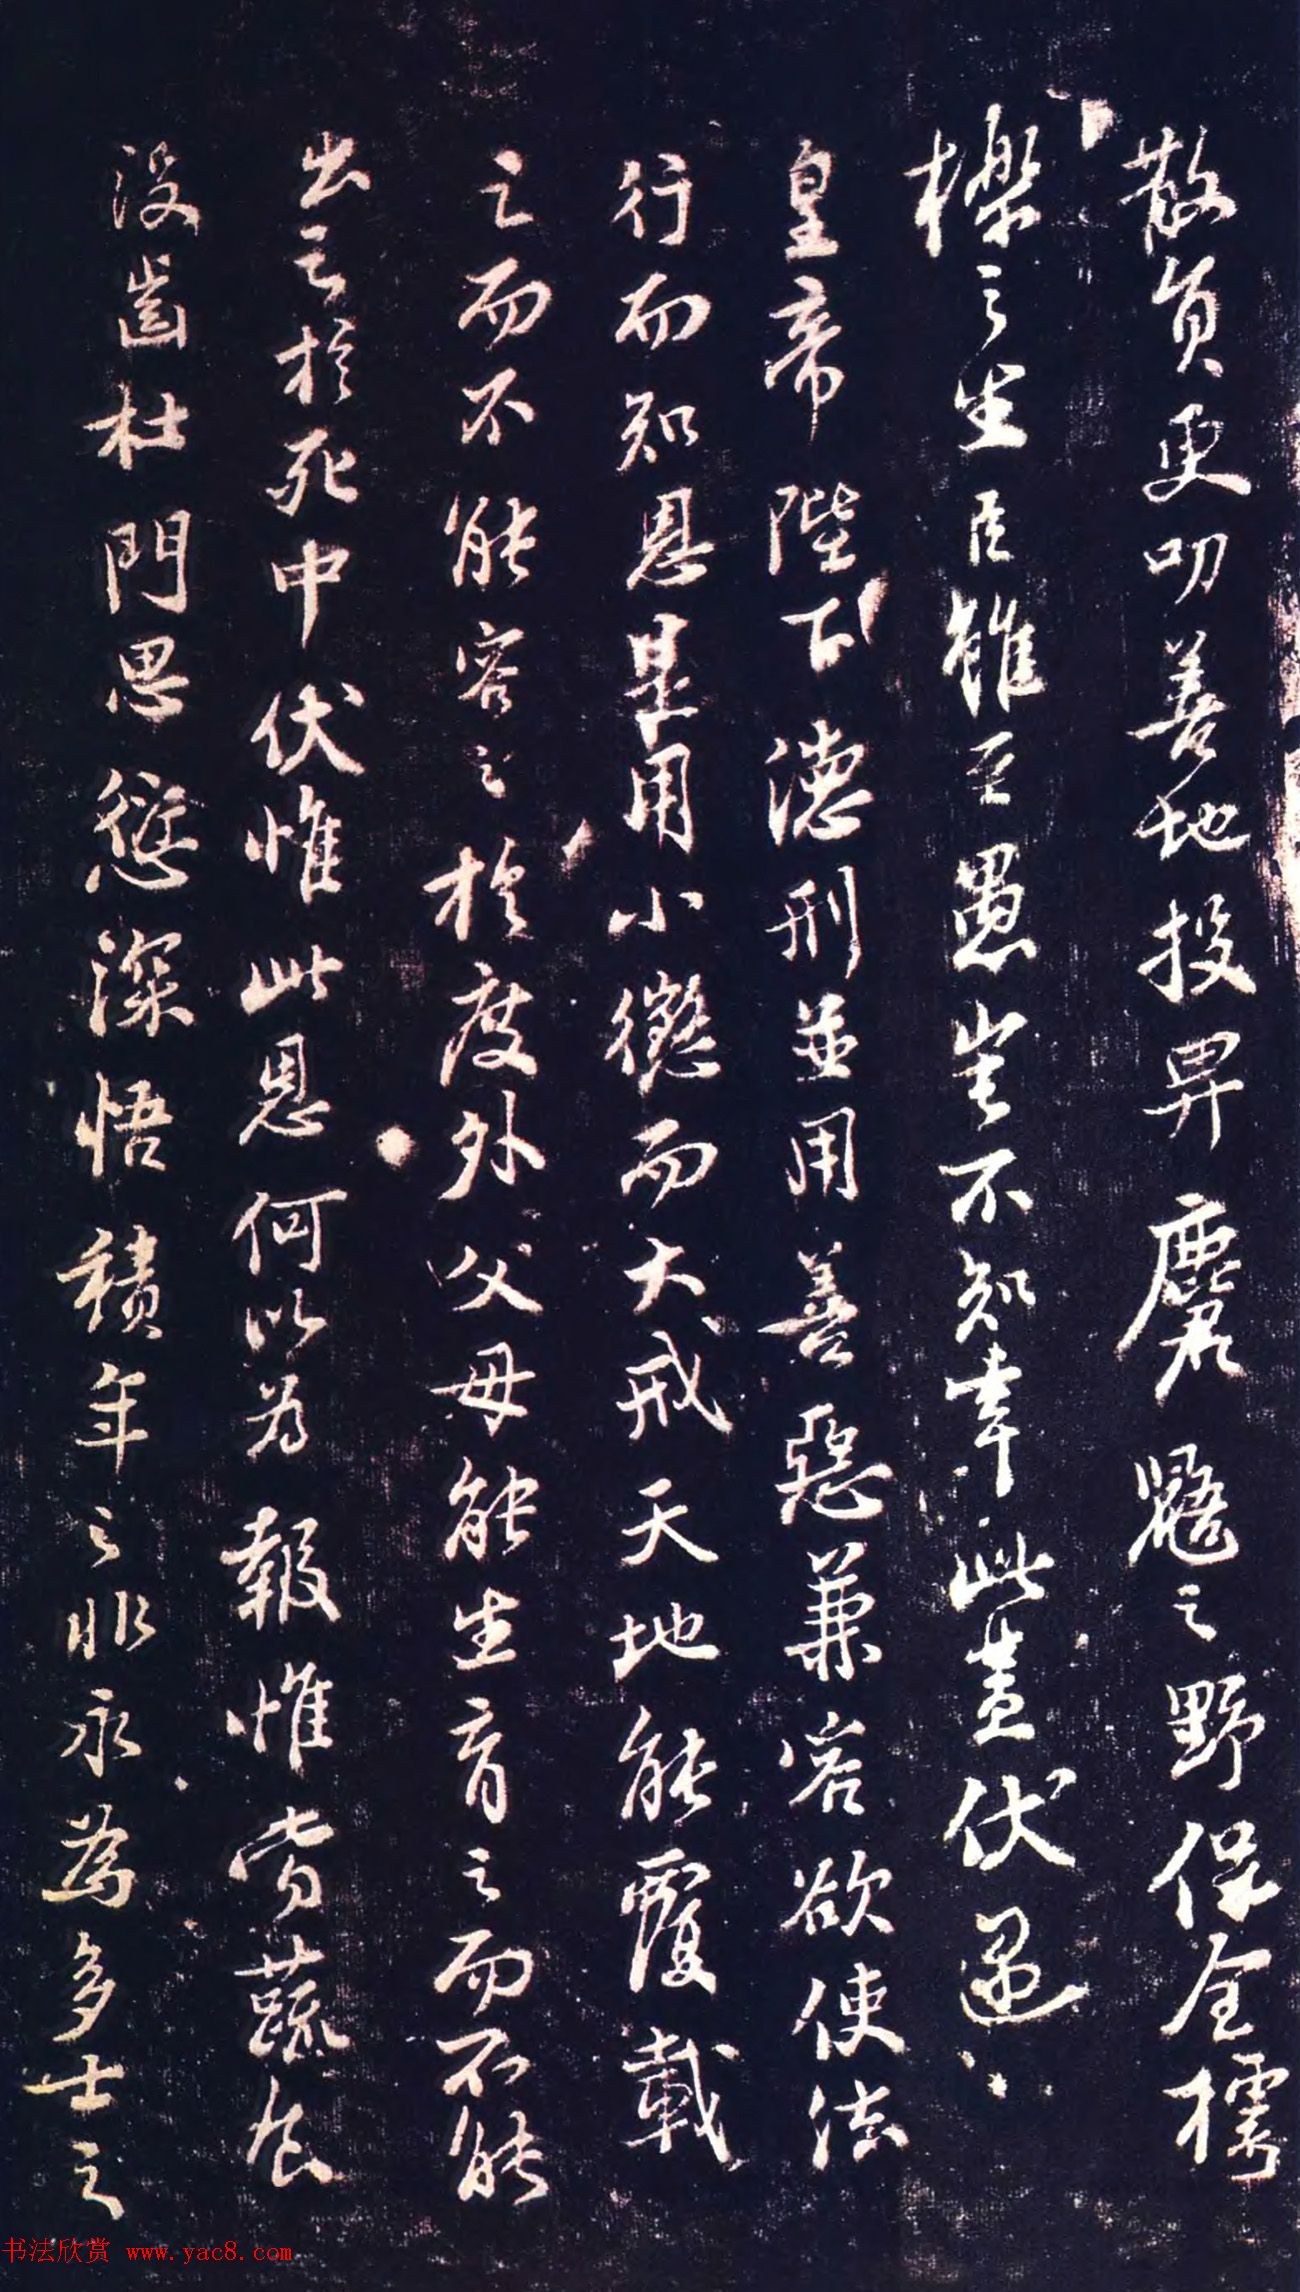 散員更叨善地投畀麏鼯之野保全樗
櫟之生臣雖至愚豈不知幸此蓋伏遇
皇帝陛下德刑並用善惡兼容欲使法
行而知恩是用小懲而大戒天地能覆載
之而不能容之於度外父母能生育之而不能
出之於死中伏惟此恩何以為報惟當蔬食
沒齒杜門思愆深悟積年之非永為多士之
书法欣赏 www.yac8.com